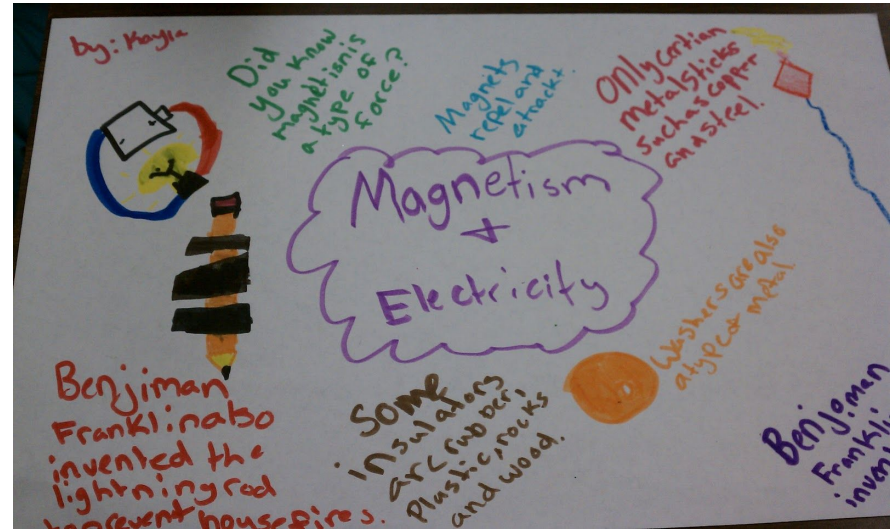 by: Kayla
Did
you know
magnetism is
a type of
force?
Magnets
repel and
atrackt.
Only certian
metal sticks
such as copper
and steel.
Magnetism
+
Electricity
Washers are also
a type of metal
Benjiman
Franklin also
invented the
lightning rod
to prevent house fires.
Some
insulators
are rubber,
Plastic, rocks
and wood.
Benjoman